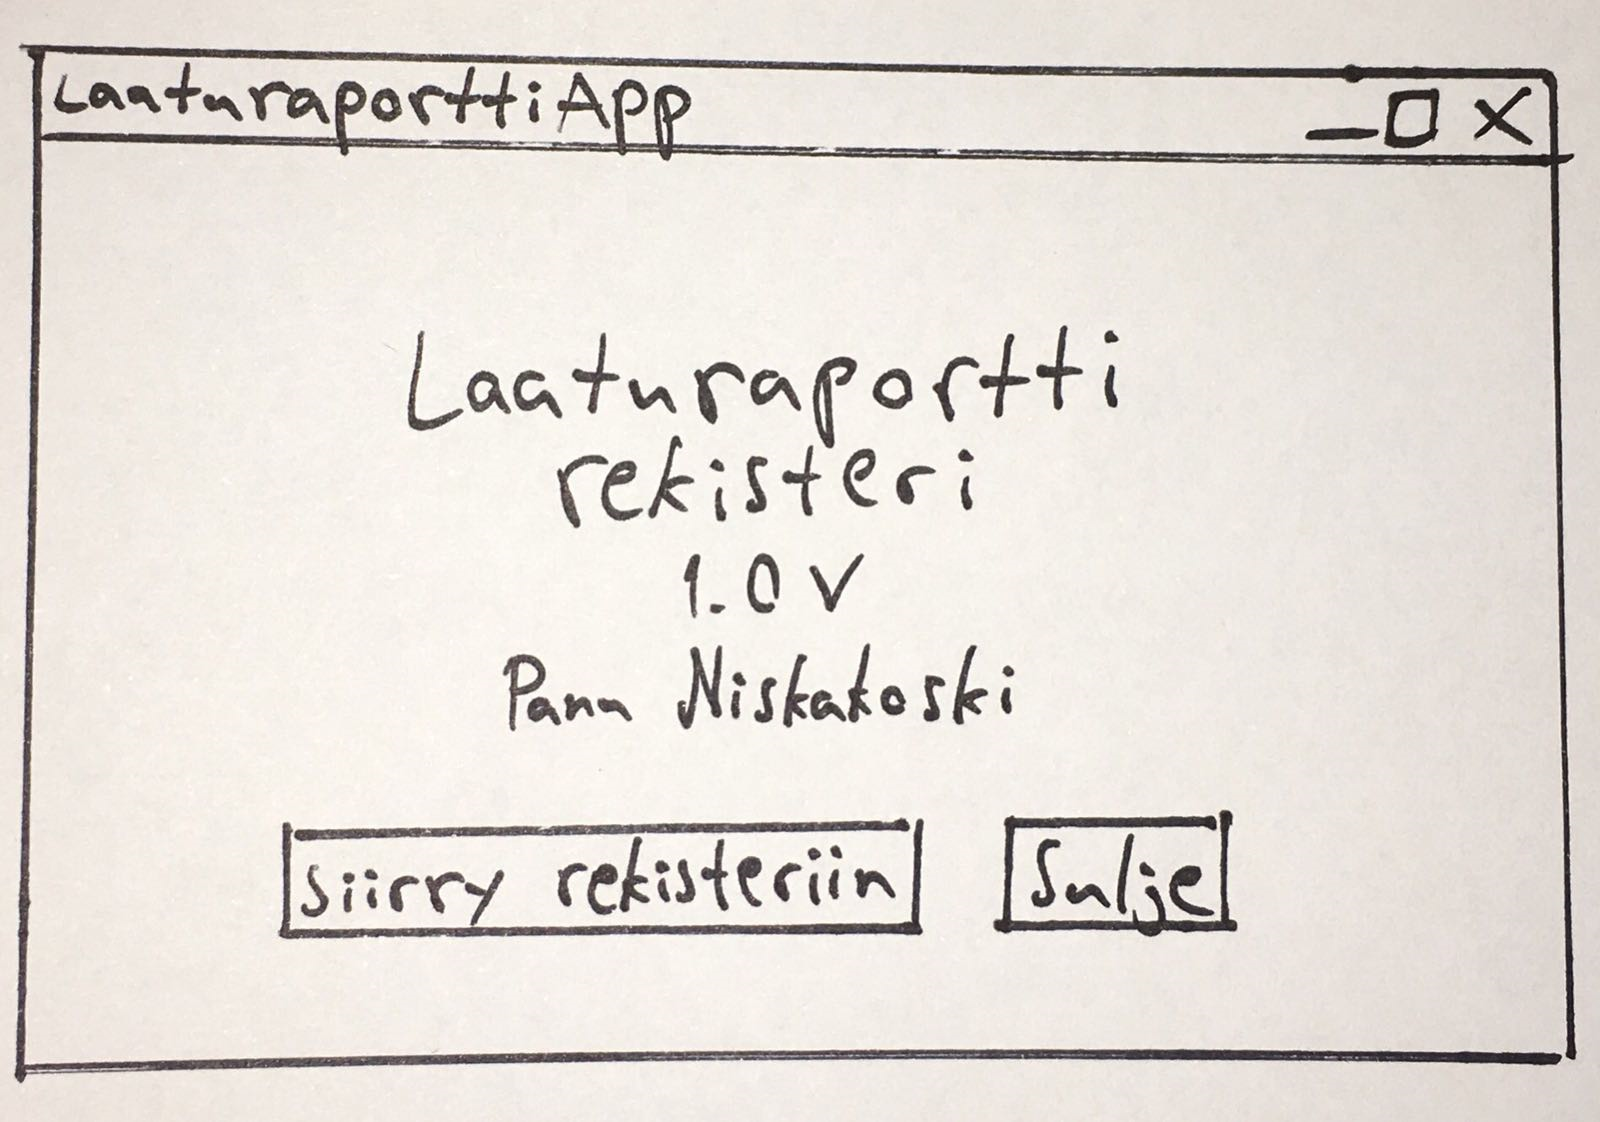 LaaturaporttiApp
Laaturaportti
rekisteri
1.0 V
Panu Niskakoski
Siirry rekisteriin
Sulje